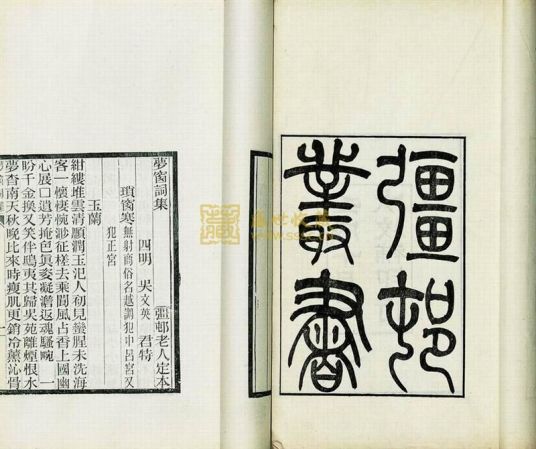 彊邨
叢書
夢窗詞集 彊邨老人定本
四明 吳文英 君特
瑣窗寒 無射商俗名越調犯中呂宮又
犯正宮
玉蘭
紺縷堆雲清顋潤玉汜人初見蠻腥未洗海
客一懷悽惋渺征槎去乘閬風占香上國幽
心展□遺芳掩色眞姿凝澹返魂騷畹 一
盼千金換又笑伴鴟夷共歸吳苑離煙恨水
夢杳南天秋晚比來時瘦肌更銷冷薰沁骨